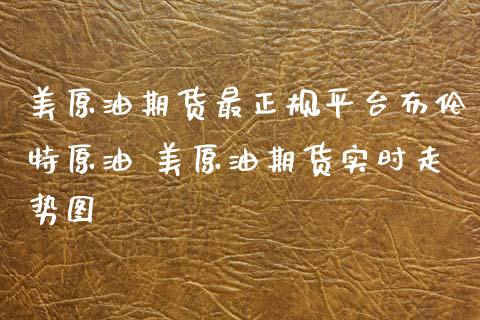 美原油期货最正规平台布伦
特原油 美原油期货实时走
势图